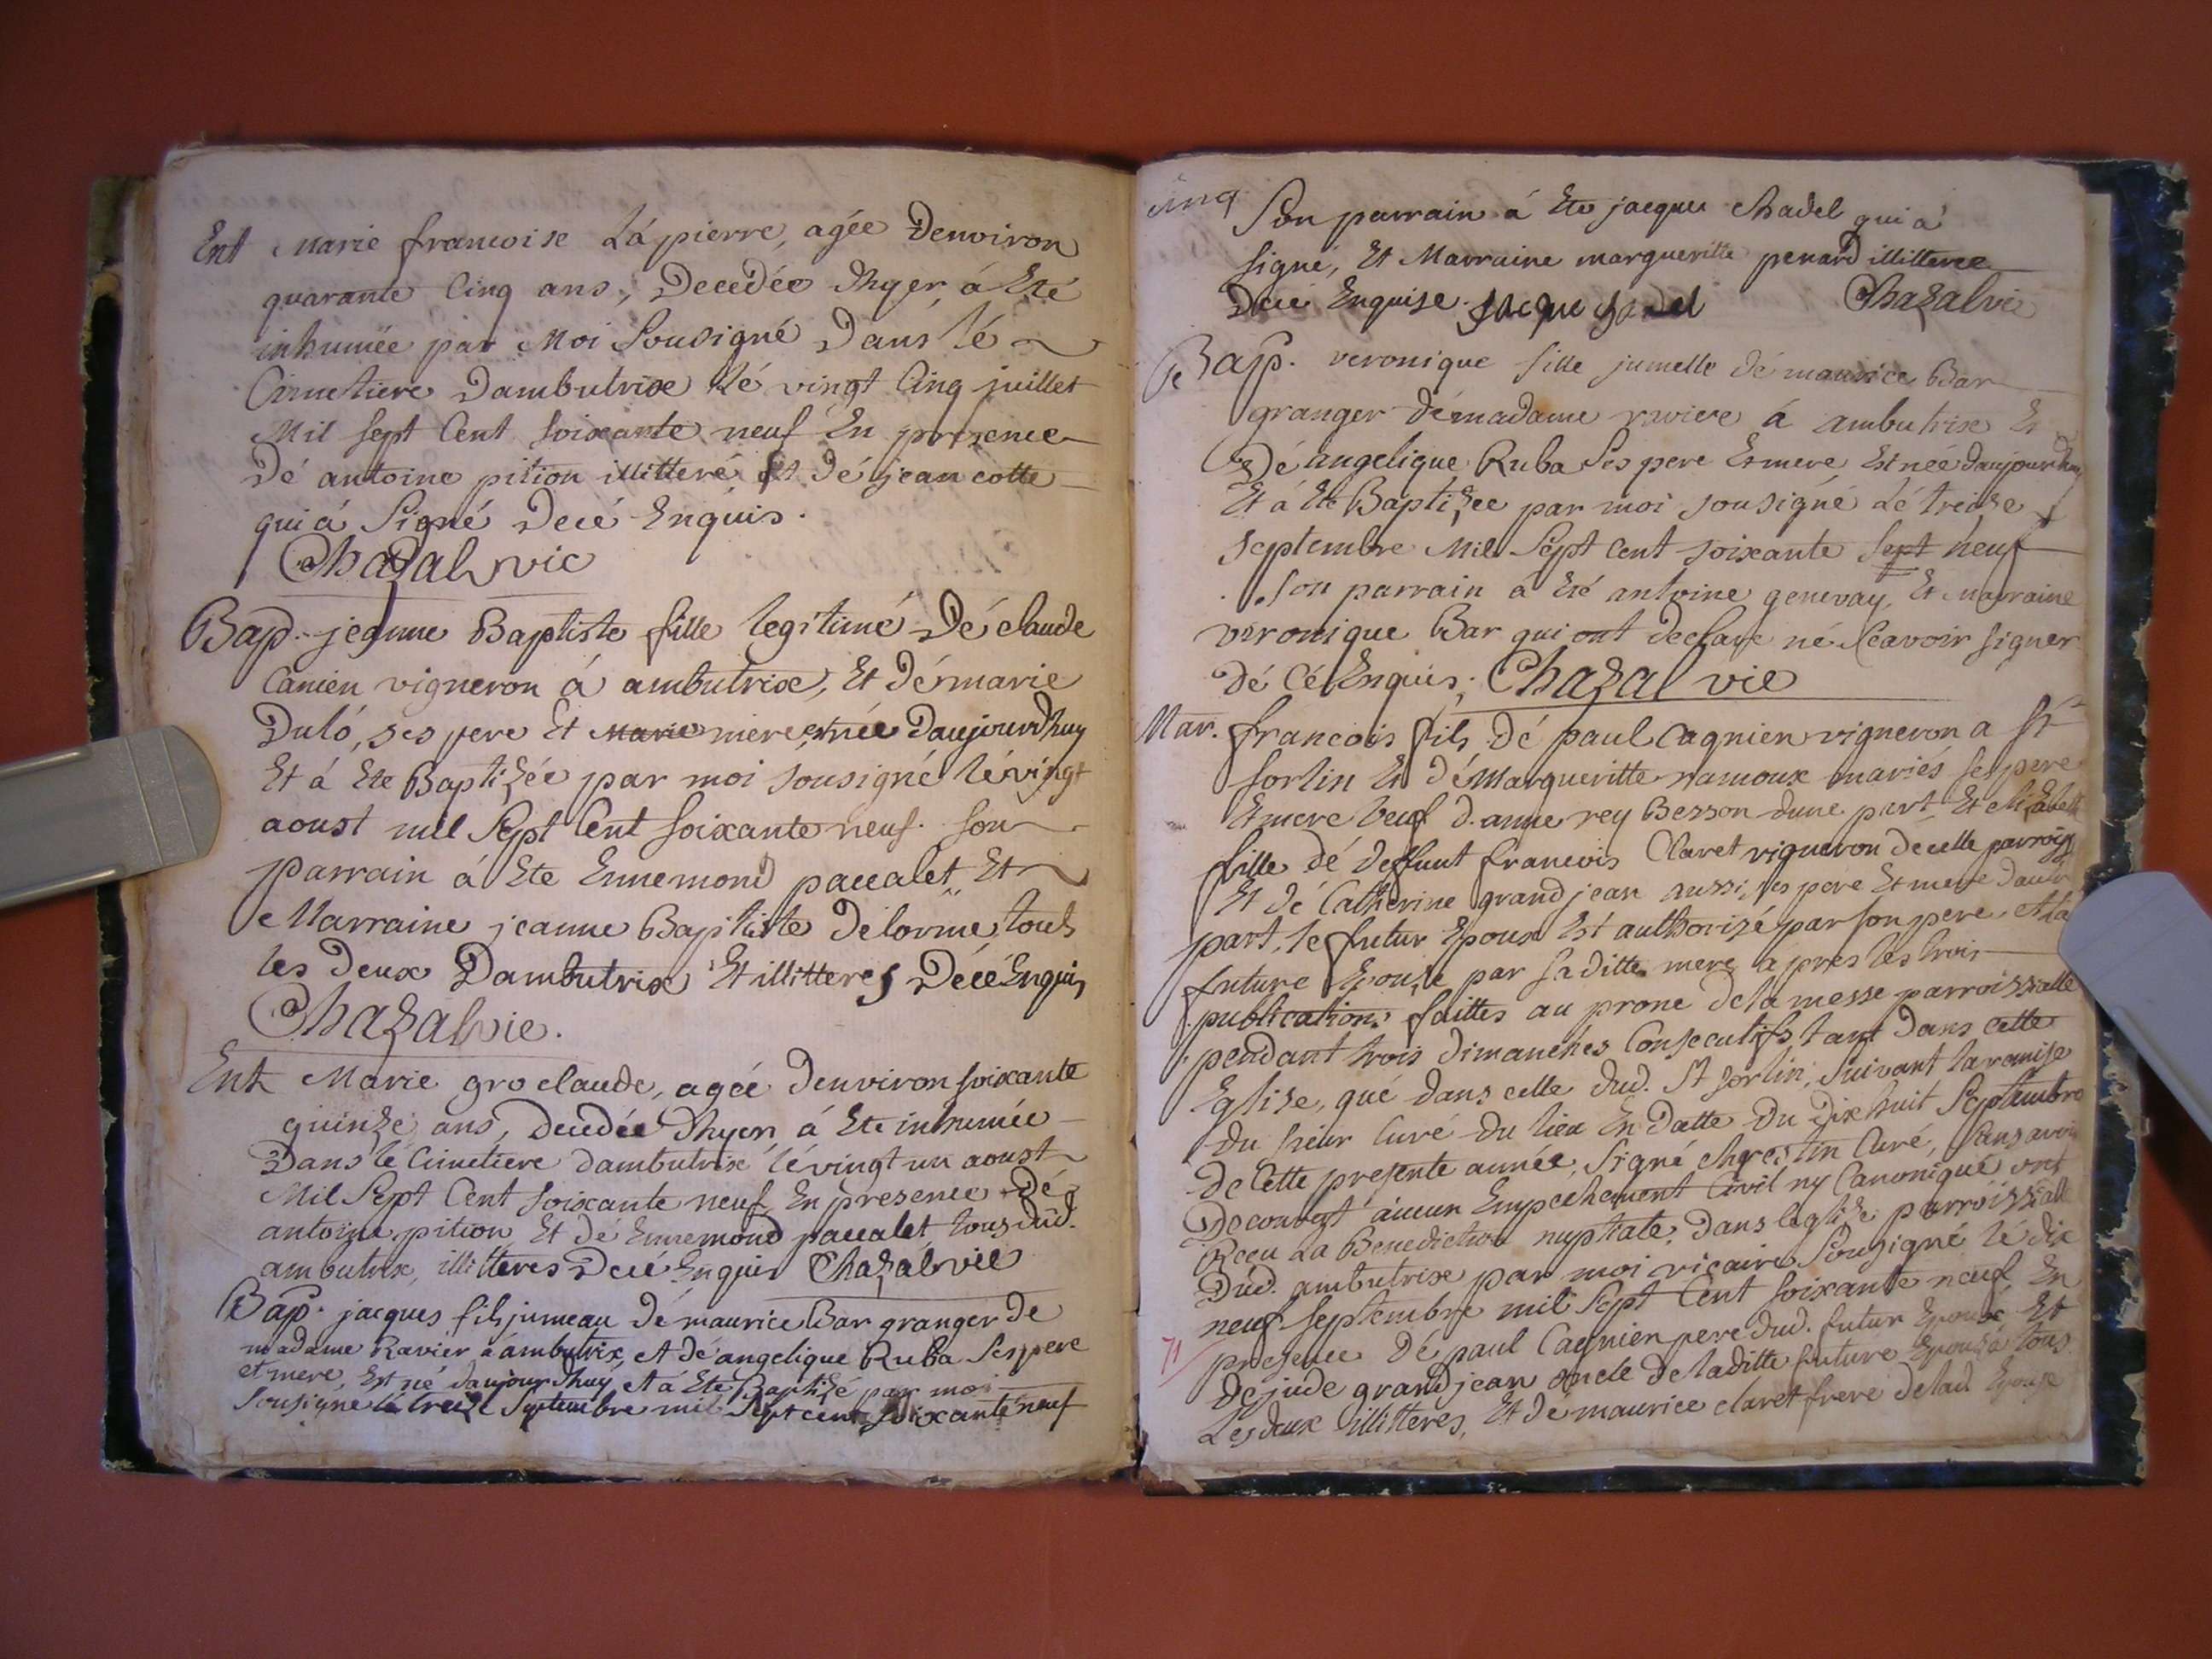 Ent Marie francoise Lápierre, agée Denviron
quarante Cinq ans, Decedée Dhyer, á Eté
inhumée par Moi Sousigné Dans lé
Cimetiere Dambutrix Lé vingt Cinq juillet
Mil sept Cent soixante neuf En presence
Dé antoine pition illitteré Et Dé jean cotte
qui á Signé Decé Enquis.
Chazal vic
Bap. jeanne Baptiste fille legitimé Dé claude
Canien vigneron á ambutrix, Et Dé marie
Duló, ses pere Et Marie mere, est née Daujourdhuy
Et á Ete Baptizée par moi sousigné lé vingt
aoust mil Sept Cent soixante neuf. son
parrain á Ete Ennemond paccalet Et
Marraine jeanne Baptiste Delorme, tous
les deux Dambutrix Et illitteres Decé Enquis
Chazal vic.
Ent Marie groclaude, agée Denviron soixante
quinze ans, Decedée Dhyer, á Ete inhumée
Dans lé Cimetiere dambutrix lé vingt un aoust
Mil Sept Cent soixante neuf En presence Dé
antoine pition Et Dé Ennemond paccalet tous dud.
ambutrix, illitteres Decé Enquis Chazal vic
Bap. jacques fils jumeau Dé maurice Bar granger De
madame Ravier á ambutrix, et dé angelique Ruba Ses pere
et mere, Est né daujourdhuy, et á Ete Baptizé par moi
Sousigné lé treize Septembre mil Sept cent soixante neuf
cinq
Son parrain á Ete jacques chadel qui á
signé, Et Marraine margueritte penard illitteree
Decé Enquise. jacque chadel Chazal vic
Bap. veronique fille jumelle Dé maurice Bar
granger démadame raviere á ambutrix Et
Dé angelique Ruba Ses pere Et mere, Est née daujourdhuy
Et á Ete Baptizée par moi sousigné Lé treize
Septembre Mil Sept Cent soixante sept neuf
. son parrain á Eté antoine genevay, Et marraine
veronique Bar qui ont declare né scavoir signer
Dé Cé Enquis. Chazal vic
Mar. francois fils dé paul Cagnien vigneron a St
Sorlin Et dé Margueritte ramoux mariés ses pere
Et mere veuf d. anne rey Besson dune part Et elizabeth
fille dé deffunt francois Claret vigneron de cette parroisse
Et dé Catherine grandjean aussi, ses pere Et mere dautre
part, le futur Epoux Est authorizé par son pere, et la
future Epouse par sa ditte mere apres les trois
publications faittes au prone de la messe parroissialle
pendant trois dimanches Consecutifs, tant dans cette
Eglise, qué dans celle dud. St sorlin, suivant la remise
du sieur Curé du lieu En Datte Du Dix huit Septembre
De Cette presente année, Signé chrestin Curé, sans avoir
Decouvert aucun Empechement Civil ny Canonique ont
Receu La Benediction nuptiale, Dans leglize parroissialle
Dud. ambutrix par moi vicaire Sousigné lé dix
neuf septembre mil Sept Cent soixante neuf. En
presence Dé paul Cagnien pere dud. futur Epoux Et
de jude grandjean oncle de la ditte future Epouse tous
Les deux illitteres, Et Dé maurice claret frere delad Epouse